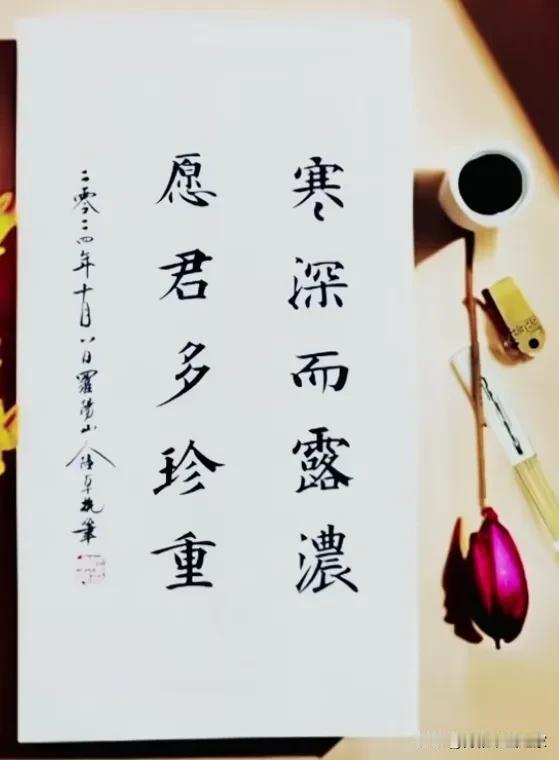 寒深而露濃
愿君多珍重
二零二四年十月八日羅陽山人陸卓執筆